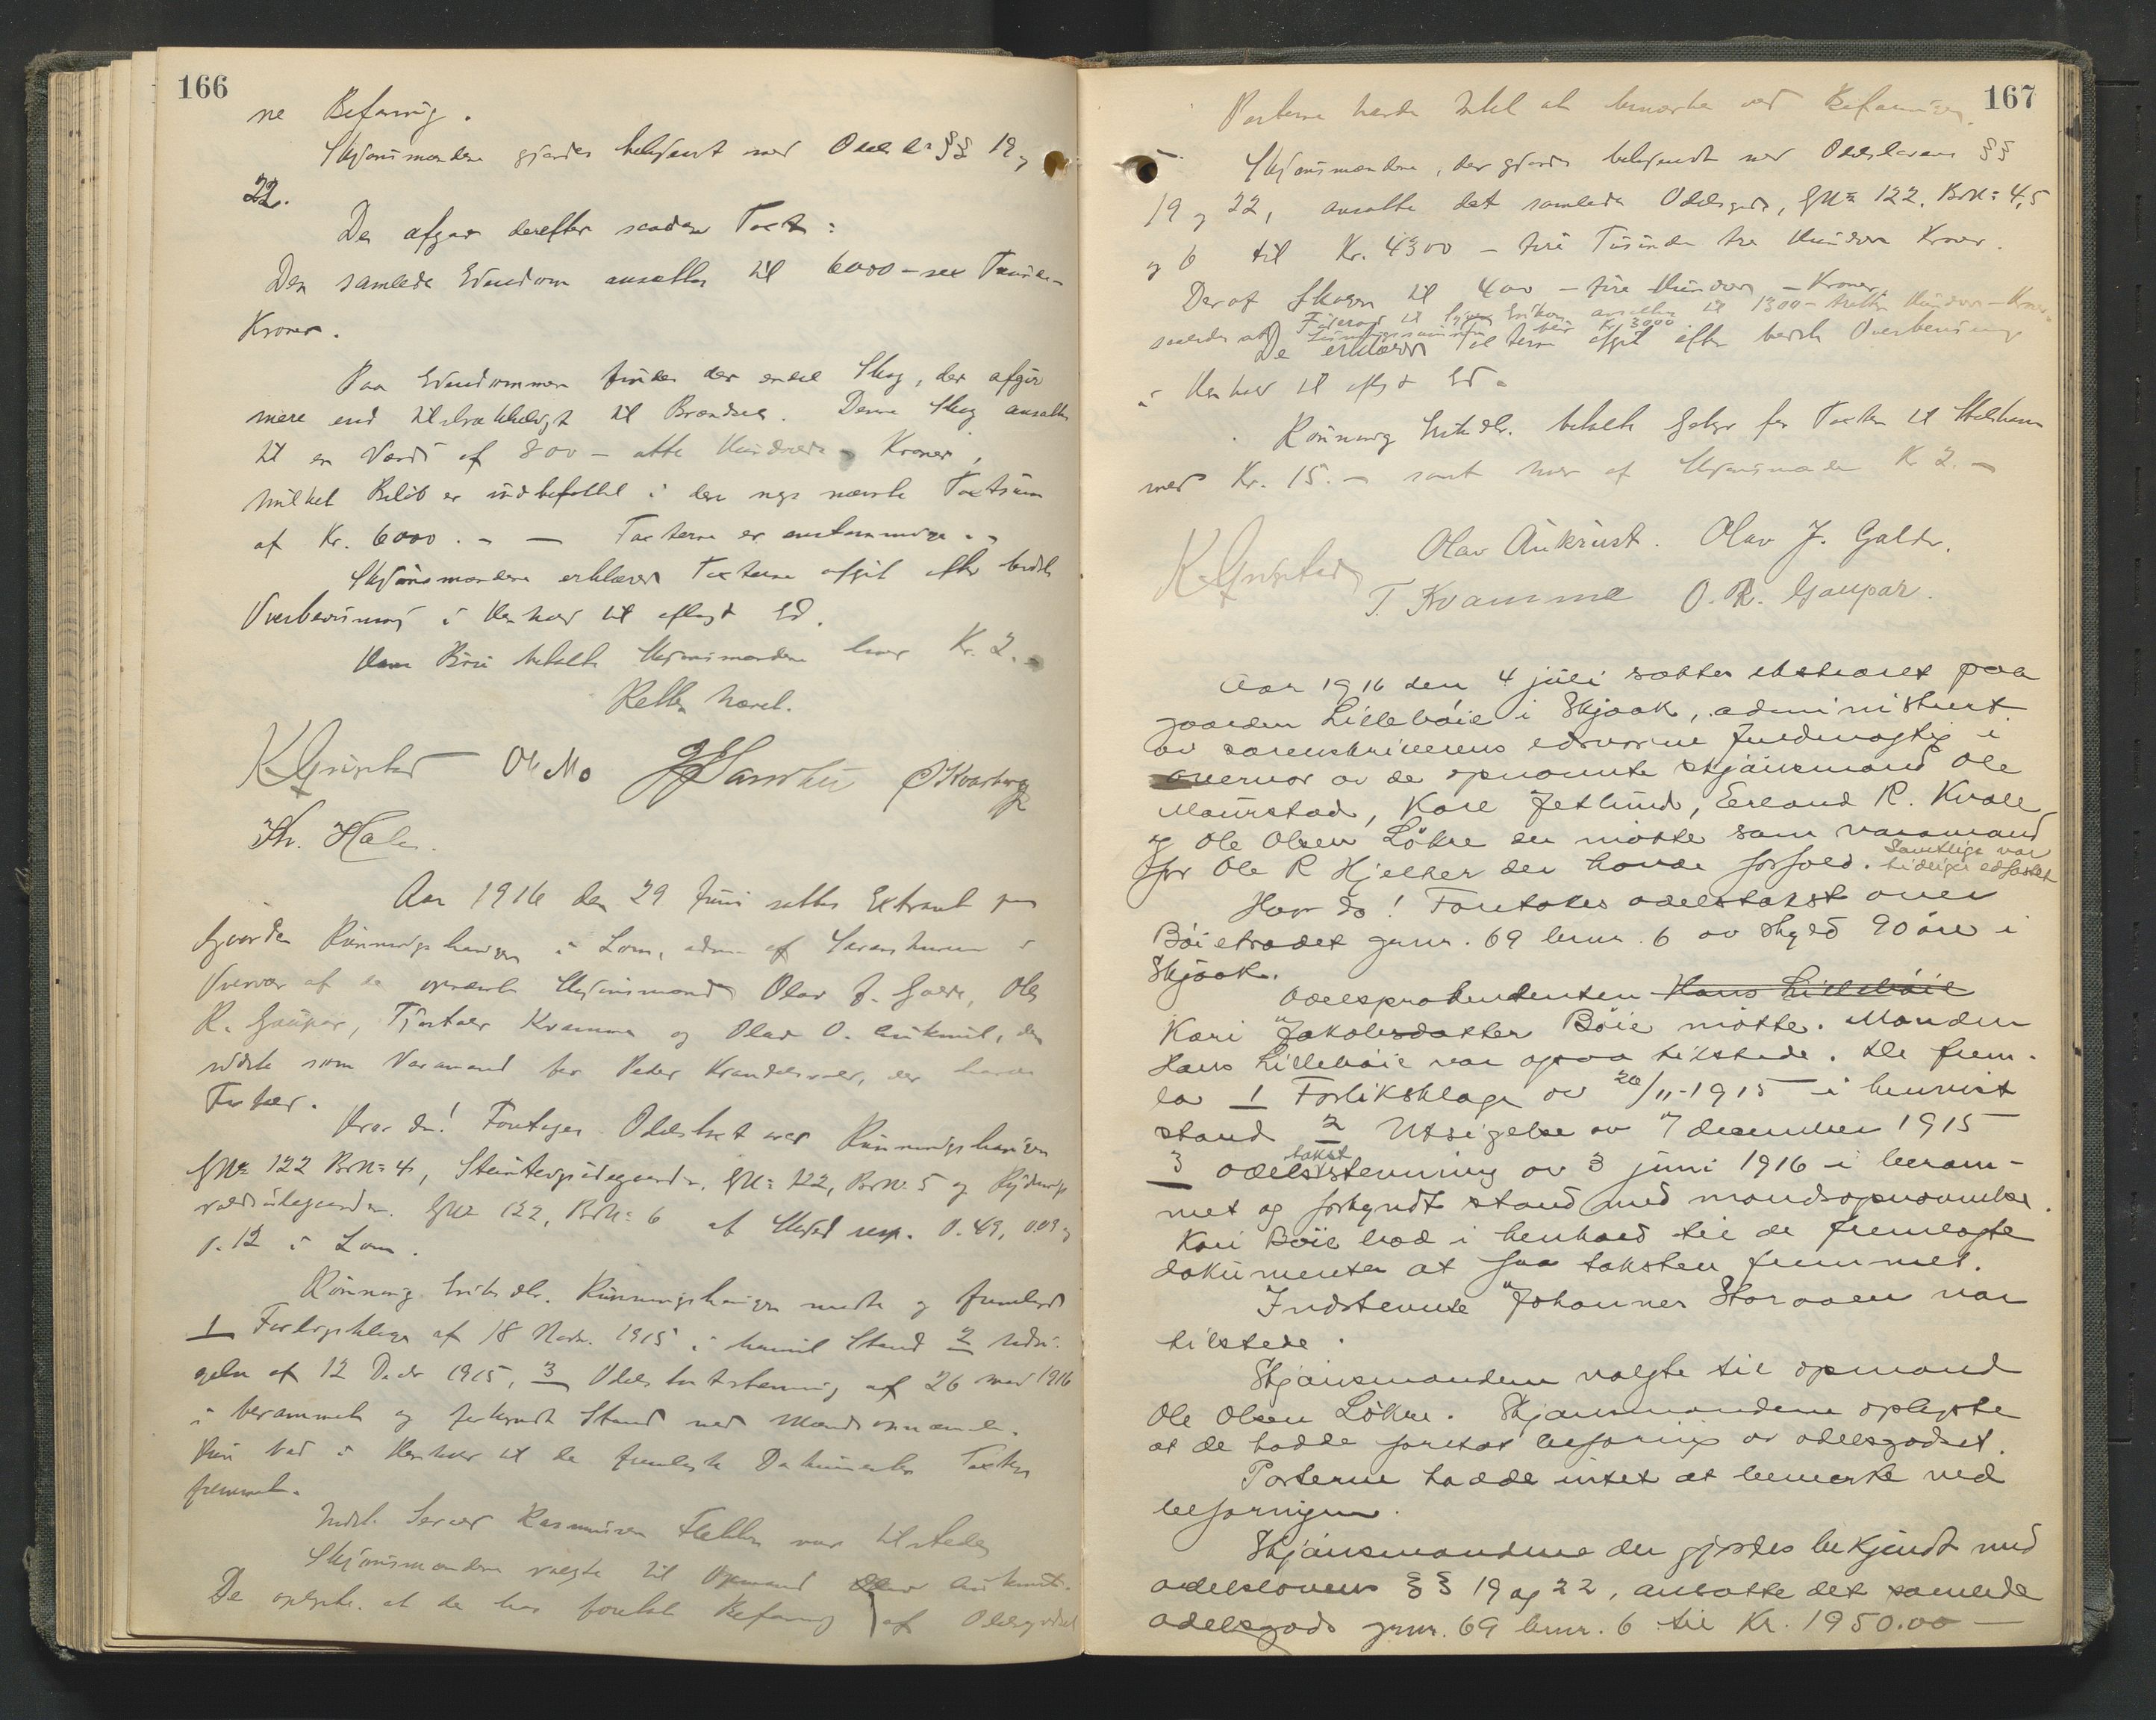 166
ne Befaring.
Skjønsmændene gjordes bekjent med Odelsl. §§ 19 og
22.
De afgav derefter saadan Taxt:
Den samlede Eiendom ansættes til 6000 – sex Tusinde –
Kroner.
Paa Eiendommen findes der endel Skog, der afgir
mere end tilstrækkeligt til Brændsel. Denne Skog ansættes
til en Værdi af 800 – otte Hundrede – Kroner,
hvilket Beløb er indbefattet i den nys nævnte Taxtsum
af Kr. 6000. – — Taxterne er enstemmige. –
Skjønsmændene erklærer Taxterne afgit efter bedste
Overbevisning i Henhold til aflagt Ed.
Hans Bøie betalte Skjønsmændene hver Kr. 2. –
Retten hævet.
K. Grinstad Ole Mo
Th. Hole.
Aar 1916 den 29 Juni sattes Extraret paa
Gaarden Rønningshaugen i Lom, adm. af Sorenskriveren i
Overvær af de opnævnte Skjønsmænd Olav J. Galde, Ole
R. Gaupar, Tjostolv Kvamme og Olav O. Aukrust, den
sidste som Varamand for Peder, der havde
Forfald.
Hvor da! Foretages Odelstaxt over Rønningshaugen
GNo 122 BrNo 4, GNo 122, BrNo 5 og
GNo 122, BrNo 6 af Skyld resp. 0.49, 0.09 og
0.12 i Lom.
Rønnaug Eriksdtr. Rønningshaugen mødte og fremlagde
1 Forligsklage af 18 Novbr. 1915 i henvist Stand 2 Udsi-
gelse af 12 Decbr 1915, 3 Odelstaxtstevning af 26 mai 1916
i berammet og forkyndt Stand med Mandsopnævnelse.
Hun bad i Henhold til de fremlagte Dokumenter Taxten
fremmet.
Indst. Rasmussen Flekken var tilstede
Skjønsmændene valgte til Opmand Olav Aukrust.
De oplyste at de har foretat Befaring af Odelsgodset
167
Parterne havde Intet at bemærke ved Befaringen.
Skjønsmændene, der gjordes bekjendt med Odelslovens §§
19 og 22, ansatte det samlede Odelsgods, GNo 122, BrNo 4, 5
og 6 til Kr. 4300 – fire Tusinde tre Hundre Kroner.
Deraf Skogen til 400 – fire Hundre – Kroner,
Føderaad til ansættes til 1300 – tretten Hundre – Kroner
saaledes at Løsningssummen blir Kr. 3000
De erklærer Taxterne afgit efter bedste Overbevisning
i Henhold til aflagt Ed.
Rønnaug Eriksdtr. betalte Gebyr for Taxten til
med Kr. 15. – samt hver af Skjønsmændene Kr 2. –
K. Grinstad Olav Aukrust. Olav J. Galde.
T. Kvamme O. R. Gaupar.
Aar 1916 den 4 juli sattes ekstraret paa
gaarden Lillebøie i Skjaak, administrert
av sorenskriverens edsvorne fuldmægtig i
overvær av de opnævnte skjønsmænd Ole
Maurstad, Kare Jetlund, Erland R. Kvale
og Ole Olsen Løkre der møtte som varamand
for Ole R Hjelter der havde forfald. Samtlige var
tidligere edfæstet
Hvor da! Foretokes odelstakst over
Bøietrædet gnr. 69 bnr. 6 av skyld 90 øre i
Skjaak.
Odelsprætendenten Hans Lillebøie
Kari Jakobsdatter Bøie møtte. Manden
Hans Lillebøie var ogsaa tilstede. De frem-
la 1 Forliksklage av 20/11-1915 i henvist
stand 2 Utsigelse av 7 december 1915
3 odelstakststevning av 3 juni 1916 i beram-
met og forkyndt stand med mandsopnævnelse.
Kari Bøie bad i henhold til de fremlagte
dokumenter at faa taksten fremmet.
Indstevnte Johannes Storaaen var
tilstede.
Skjønsmændene valgte til opmand
Ole Olsen Løkre. Skjønsmændene oplyste
at de hadde foretat befaring av odelsgodset.
Parterne hadde intet at bemerke ved
befaringen.
Skjønsmændene der gjordes bekjendt med
odelslovens §§ 19 og 22, ansatte det samlede
odelsgods gnr. 69 bnr. 6 til Kr. 1950.00 –